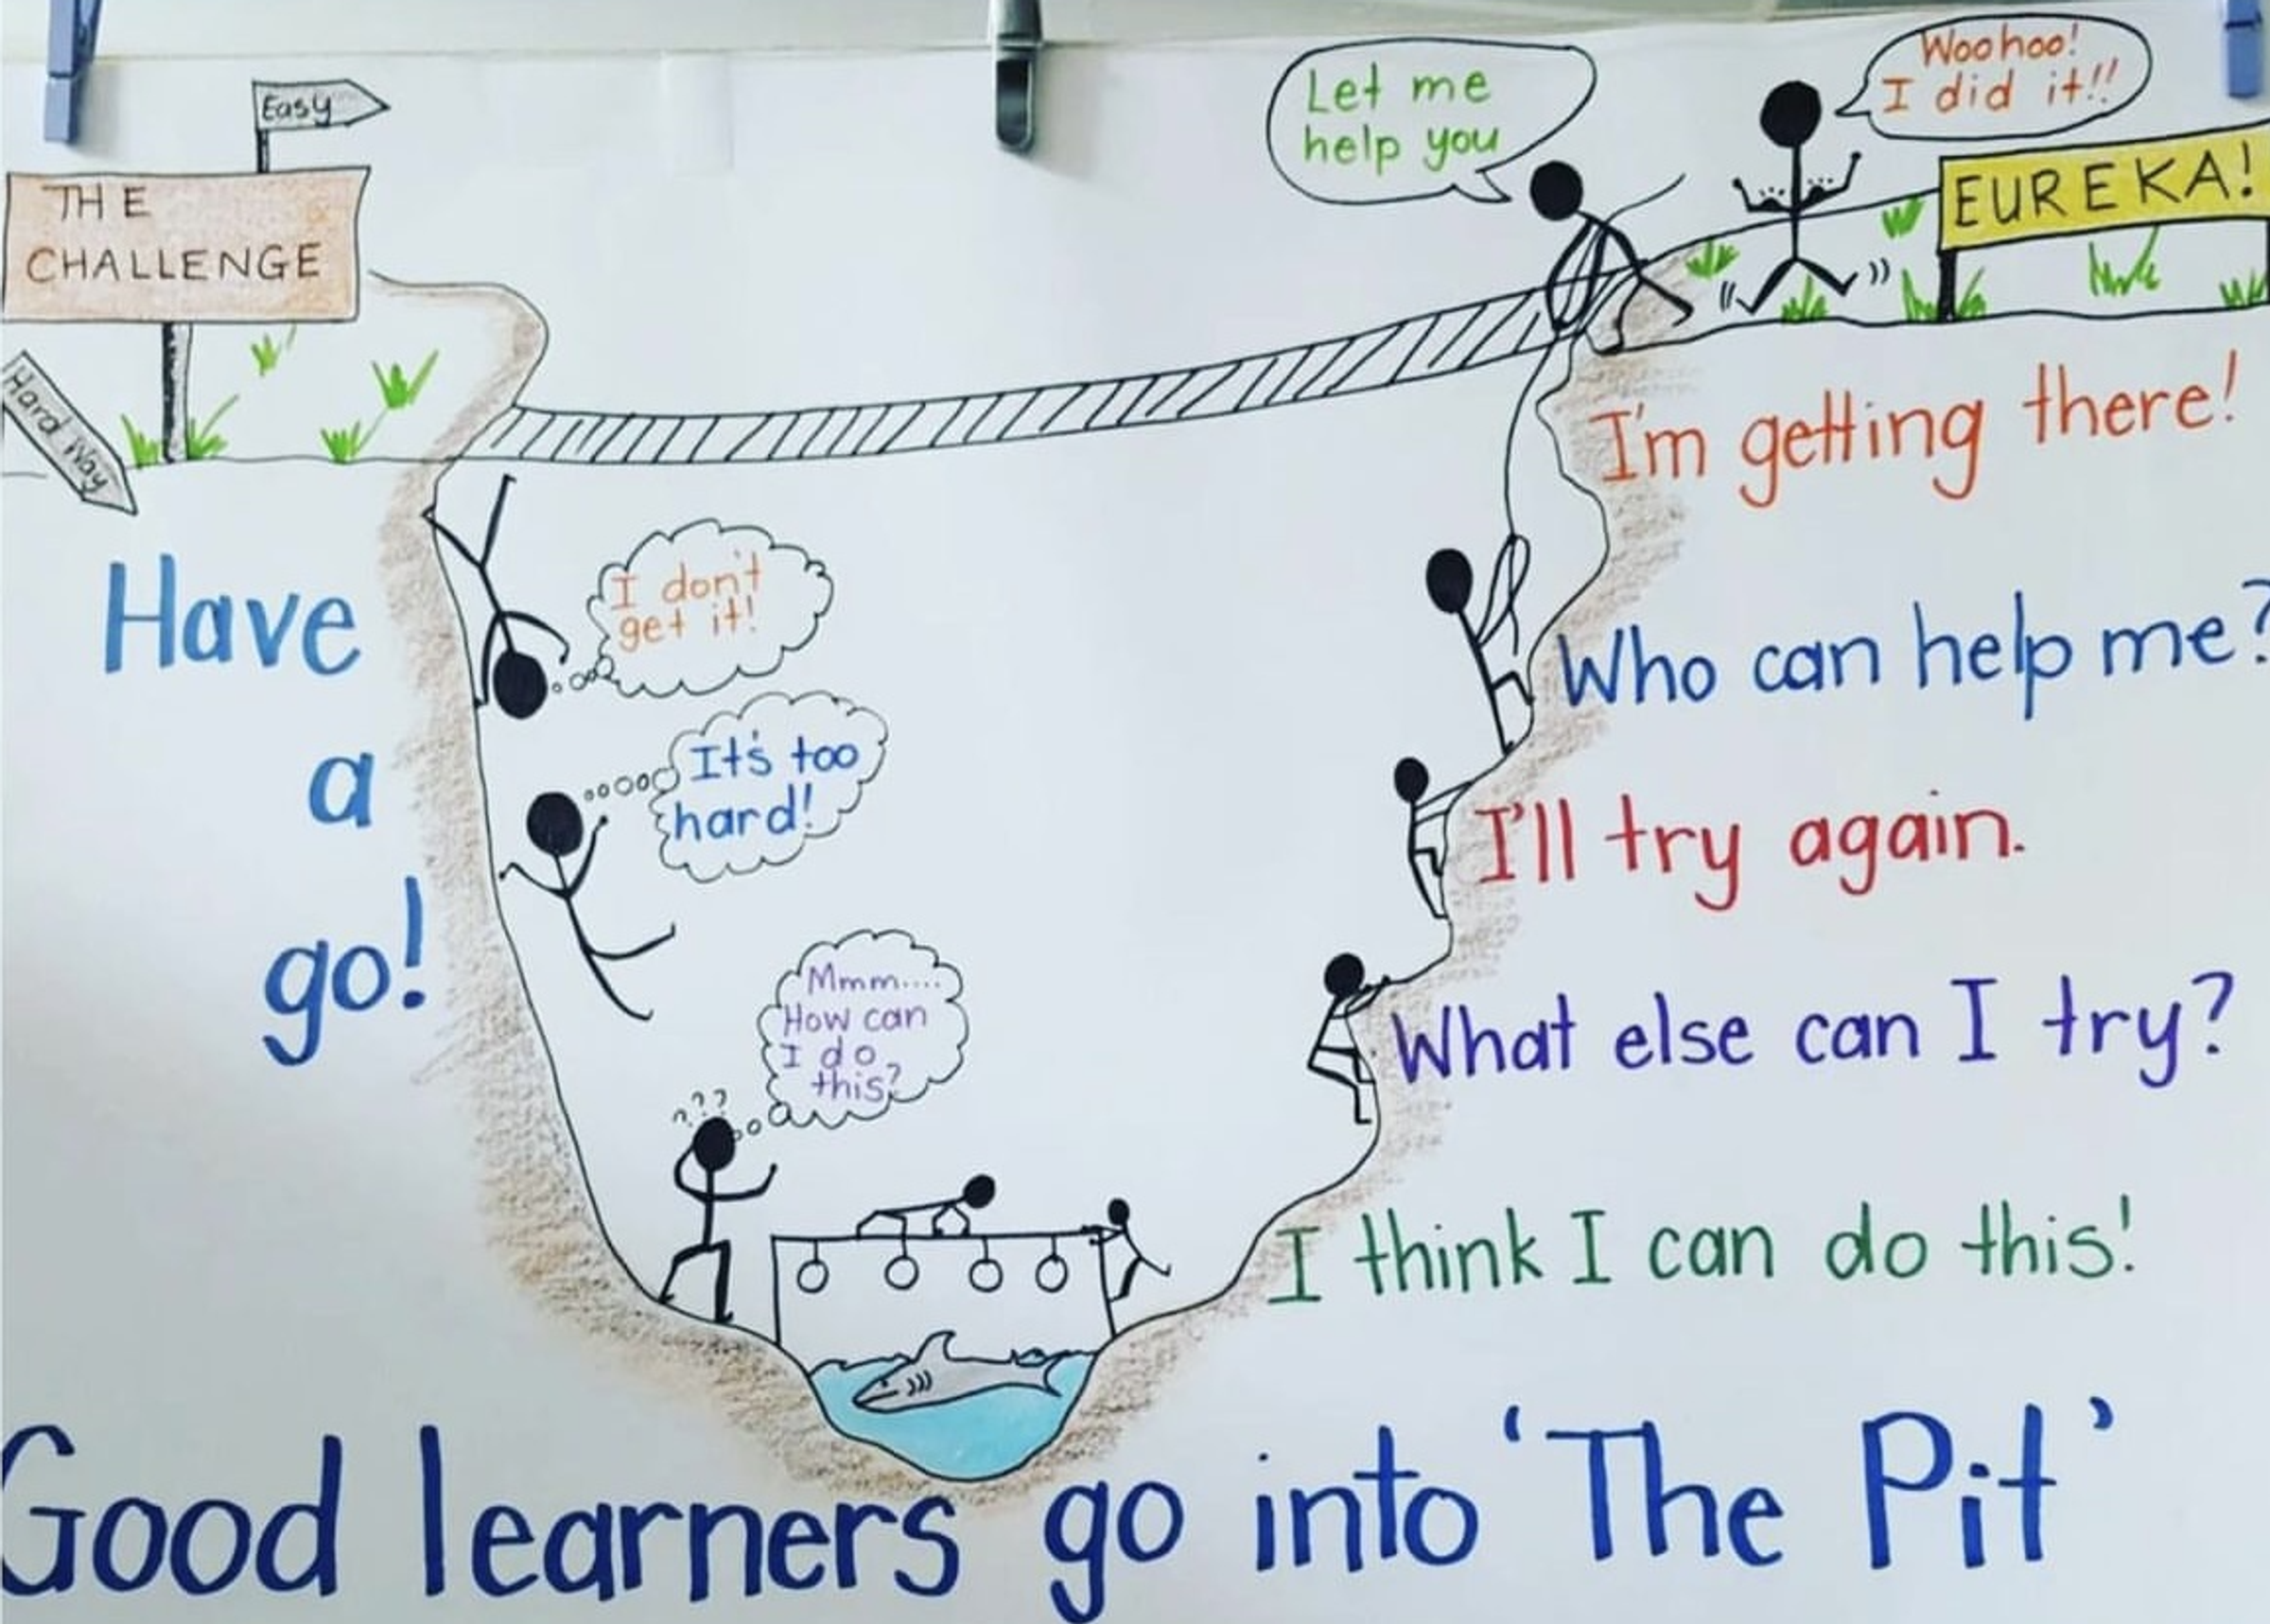 Easy
THE
CHALLENGE
Hard Way
Have
a
go!
I don't
get it!
It's too
hard!
???
Mmm....
How can
I do
this?
Let me
help you
Woohoo!
I did it!!
EUREKA!
I'm getting there!
Who can help me?
I'll try again.
What else can I try?
I think I can do this!
Good learners go into 'The Pit'